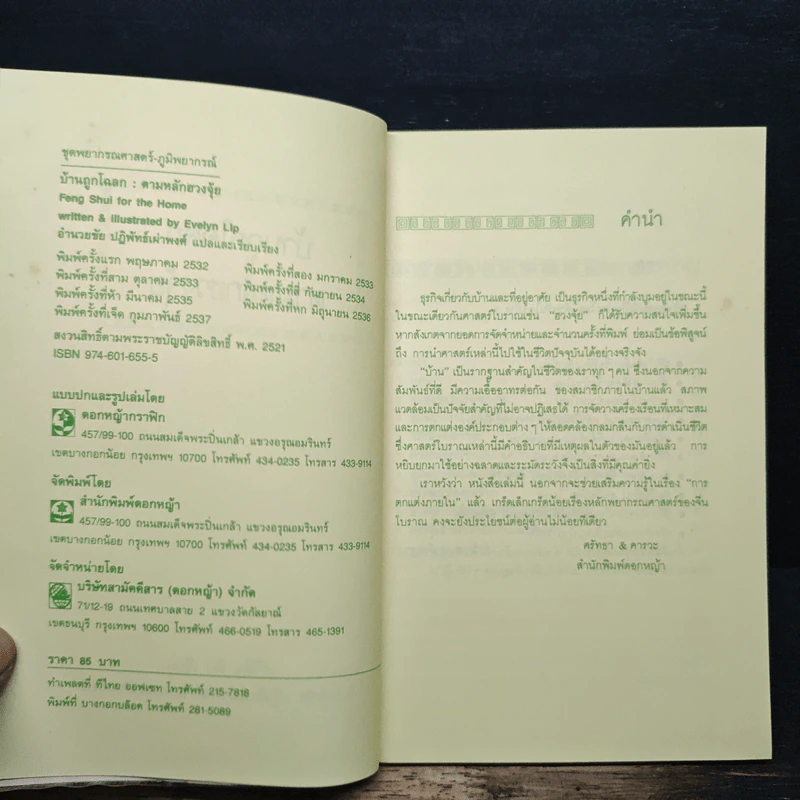 ชุดพยากรณศาสตร์-ภูมิพยากรณ์
บ้านถูกโฉลก : ตามหลักฮวงจุ้ย
Feng Shui for the Home
written & illustrated by Evelyn Lip
อำนวยชัย ปฏิพัทธ์เผ่าพงศ์ แปลและเรียบเรียง
พิมพ์ครั้งแรก พฤษภาคม 2532 พิมพ์ครั้งที่สอง มกราคม 2533
พิมพ์ครั้งที่สาม ตุลาคม 2533 พิมพ์ครั้งที่สี่ กันยายน 2534
พิมพ์ครั้งที่ห้า มีนาคม 2535 พิมพ์ครั้งที่หก มิถุนายน 2536
พิมพ์ครั้งที่เจ็ด กุมภาพันธ์ 2537
สงวนสิทธิ์ตามพระราชบัญญัติลิขสิทธิ์ พ.ศ. 2521
ISBN 974-601-655-5
แบบปกและรูปเล่มโดย
ดอกหญ้ากราฟิก
457/99-100 ถนนสมเด็จพระปิ่นเกล้า แขวงอรุณอมรินทร์
เขตบางกอกน้อย กรุงเทพฯ 10700 โทรศัพท์ 434-0235 โทรสาร 433-9114
จัดพิมพ์โดย
สำนักพิมพ์ดอกหญ้า
457/99-100 ถนนสมเด็จพระปิ่นเกล้า แขวงอรุณอมรินทร์
เขตบางกอกน้อย กรุงเทพฯ 10700 โทรศัพท์ 434-0235 โทรสาร 433-9114
จัดจำหน่ายโดย
บริษัทสามัคคีสาร (ดอกหญ้า) จำกัด
71/12-19 ถนนเทศบาลสาย 2 แขวงวัดกัลยาณ์
เขตธนบุรี กรุงเทพฯ 10600 โทรศัพท์ 466-0519 โทรสาร 465-1391
ราคา 85 บาท
ทำเพลตที่ ทีไทย ออฟเซท โทรศัพท์ 215-7818
พิมพ์ที่ บางกอกบล็อค โทรศัพท์ 281-5089
คำนำ
ธุรกิจเกี่ยวกับบ้านและที่อยู่อาศัย เป็นธุรกิจหนึ่งที่กำลังบูมอยู่ในขณะนี้
ในขณะเดียวกันศาสตร์โบราณเช่น "ฮวงจุ้ย" ก็ได้รับความสนใจเพิ่มขึ้น
หากสังเกตจากยอดการจัดจำหน่ายและจำนวนครั้งที่พิมพ์ ย่อมเป็นข้อพิสูจน์
ถึง การนำศาสตร์เหล่านี้ไปใช้ในชีวิตปัจจุบันได้อย่างจริงจัง
"บ้าน" เป็นรากฐานสำคัญในชีวิตของเราทุก ๆ คน ซึ่งนอกจากความ
สัมพันธ์ที่ดี มีความเอื้ออาทรต่อกัน ของสมาชิกภายในบ้านแล้ว สภาพ
แวดล้อมเป็นปัจจัยสำคัญที่ไม่อาจปฏิเสธได้ การจัดวางเครื่องเรือนที่เหมาะสม
และการตกแต่งองค์ประกอบต่าง ๆ ให้สอดคล้องกลมกลืนกับการดำเนินชีวิต
ซึ่งศาสตร์โบราณเหล่านี้มีคำอธิบายที่มีเหตุผลในตัวของมันอยู่แล้ว การ
หยิบยกมาใช้อย่างฉลาดและระมัดระวังจึงเป็นสิ่งที่มีคุณค่ายิ่ง
เราหวังว่า หนังสือเล่มนี้ นอกจากจะช่วยเสริมความรู้ในเรื่อง "การ
ตกแต่งภายใน" แล้ว เกร็ดเล็กเกร็ดน้อยเรื่องหลักพยากรณศาสตร์ของจีน
โบราณ คงจะยังประโยชน์ต่อผู้อ่านไม่น้อยทีเดียว
ศรัทธา & คารวะ
สำนักพิมพ์ดอกหญ้า